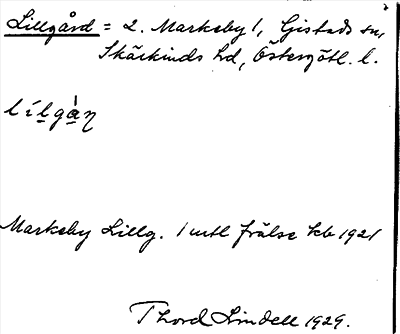 Lillgård = 2. Markeby 1, Gistads sn,
Skärkinds hd, Östergötl. l.
lílgàṇ
Markeby Lillg. 1 mtl frälse kb 1921
Thord Lindell 1929.